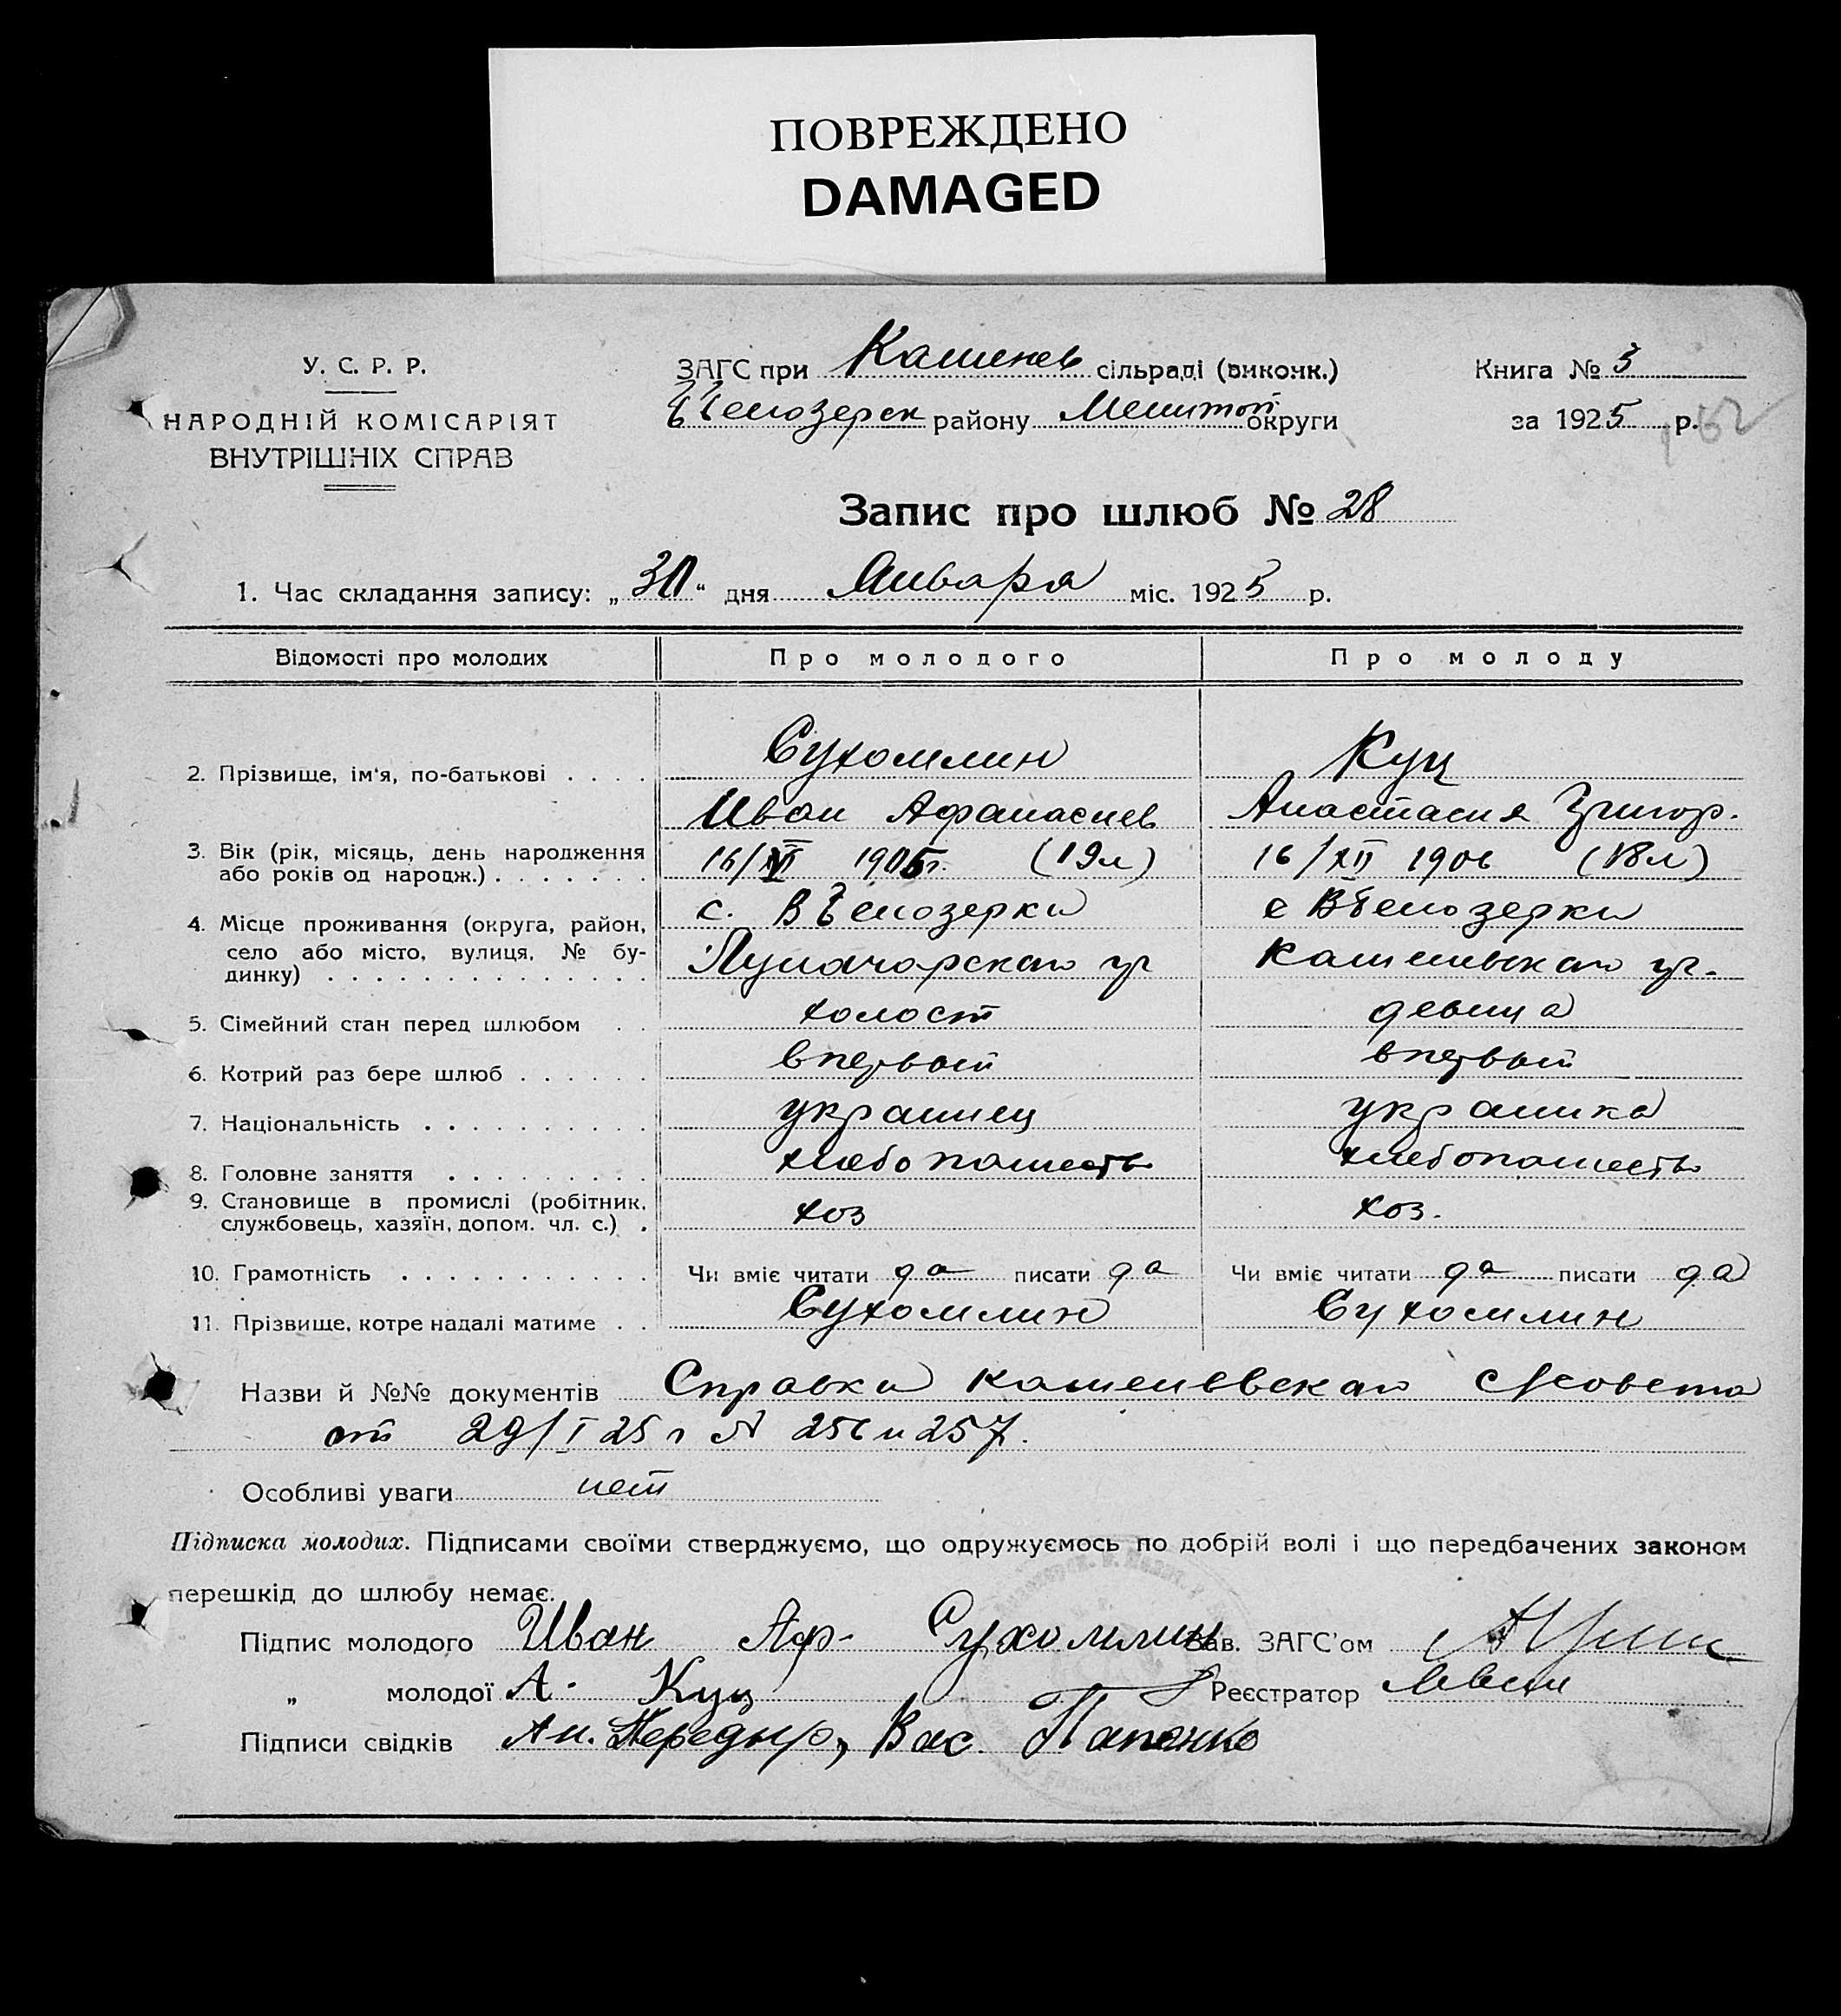 ПОВРЕЖДЕНО
DAMAGED
У. С. Р. Р.
НАРОДНІЙ КОМІСАРІЯТ
ВНУТРІШНІХ СПРАВ
ЗАГС при Каменев сільраді (виконк.)
Белозерск району Мелитоп. округи
Книга № 3
за 1925 р.
Запис про шлюб № 28
1. Час складання запису: „30“ дня Января міс. 1925 р.
Відомості про молодих Про молодого Про молоду
2. Прізвище, ім'я, по-батькові . . . . Сухомлин Куц
Иван Афанасиев Анастасия Григор.
3. Вік (рік, місяць, день народження
або років од народж.) . . . . . . . 1905г. (19л) 16/XII 1906 (18л)
4. Місце проживання (округа, район, с. ВБелозерки с ВБелозерки
село або місто, вулиця, № бу-
динку) . . . . . . . . . . . . . .
5. Сімейний стан перед шлюбом . . холост девица
6. Котрий раз бере шлюб . . . . . . впервый впервый
7. Національність . . . . . . . . . . украинец украинка
8. Головне заняття . . . . . . . . . хлебопашеств хлебопашеств
9. Становище в промислі (робітник,
службовець, хазяїн, допом. чл. с.) . хоз хоз.
10. Грамотність . . . . . . . . . . . Чи вміє читати да писати да Чи вміє читати да писати да
11. Прізвище, котре надалі матиме . . Сухомлин Сухомлин
Назви й №№ документів Справки
от 29/I 25 г № 256 и 257.
Особливі уваги нет
Підписка молодих. Підписами своїми стверджуємо, що одружуємось по добрій волі і що передбачених законом
перешкід до шлюбу немає.
Підпис молодого Иван Аф. Сухомлин Зав. ЗАГС'ом
„ молодої А. Куц Реєстратор
Підписи свідків Ан. Вас. Папенко